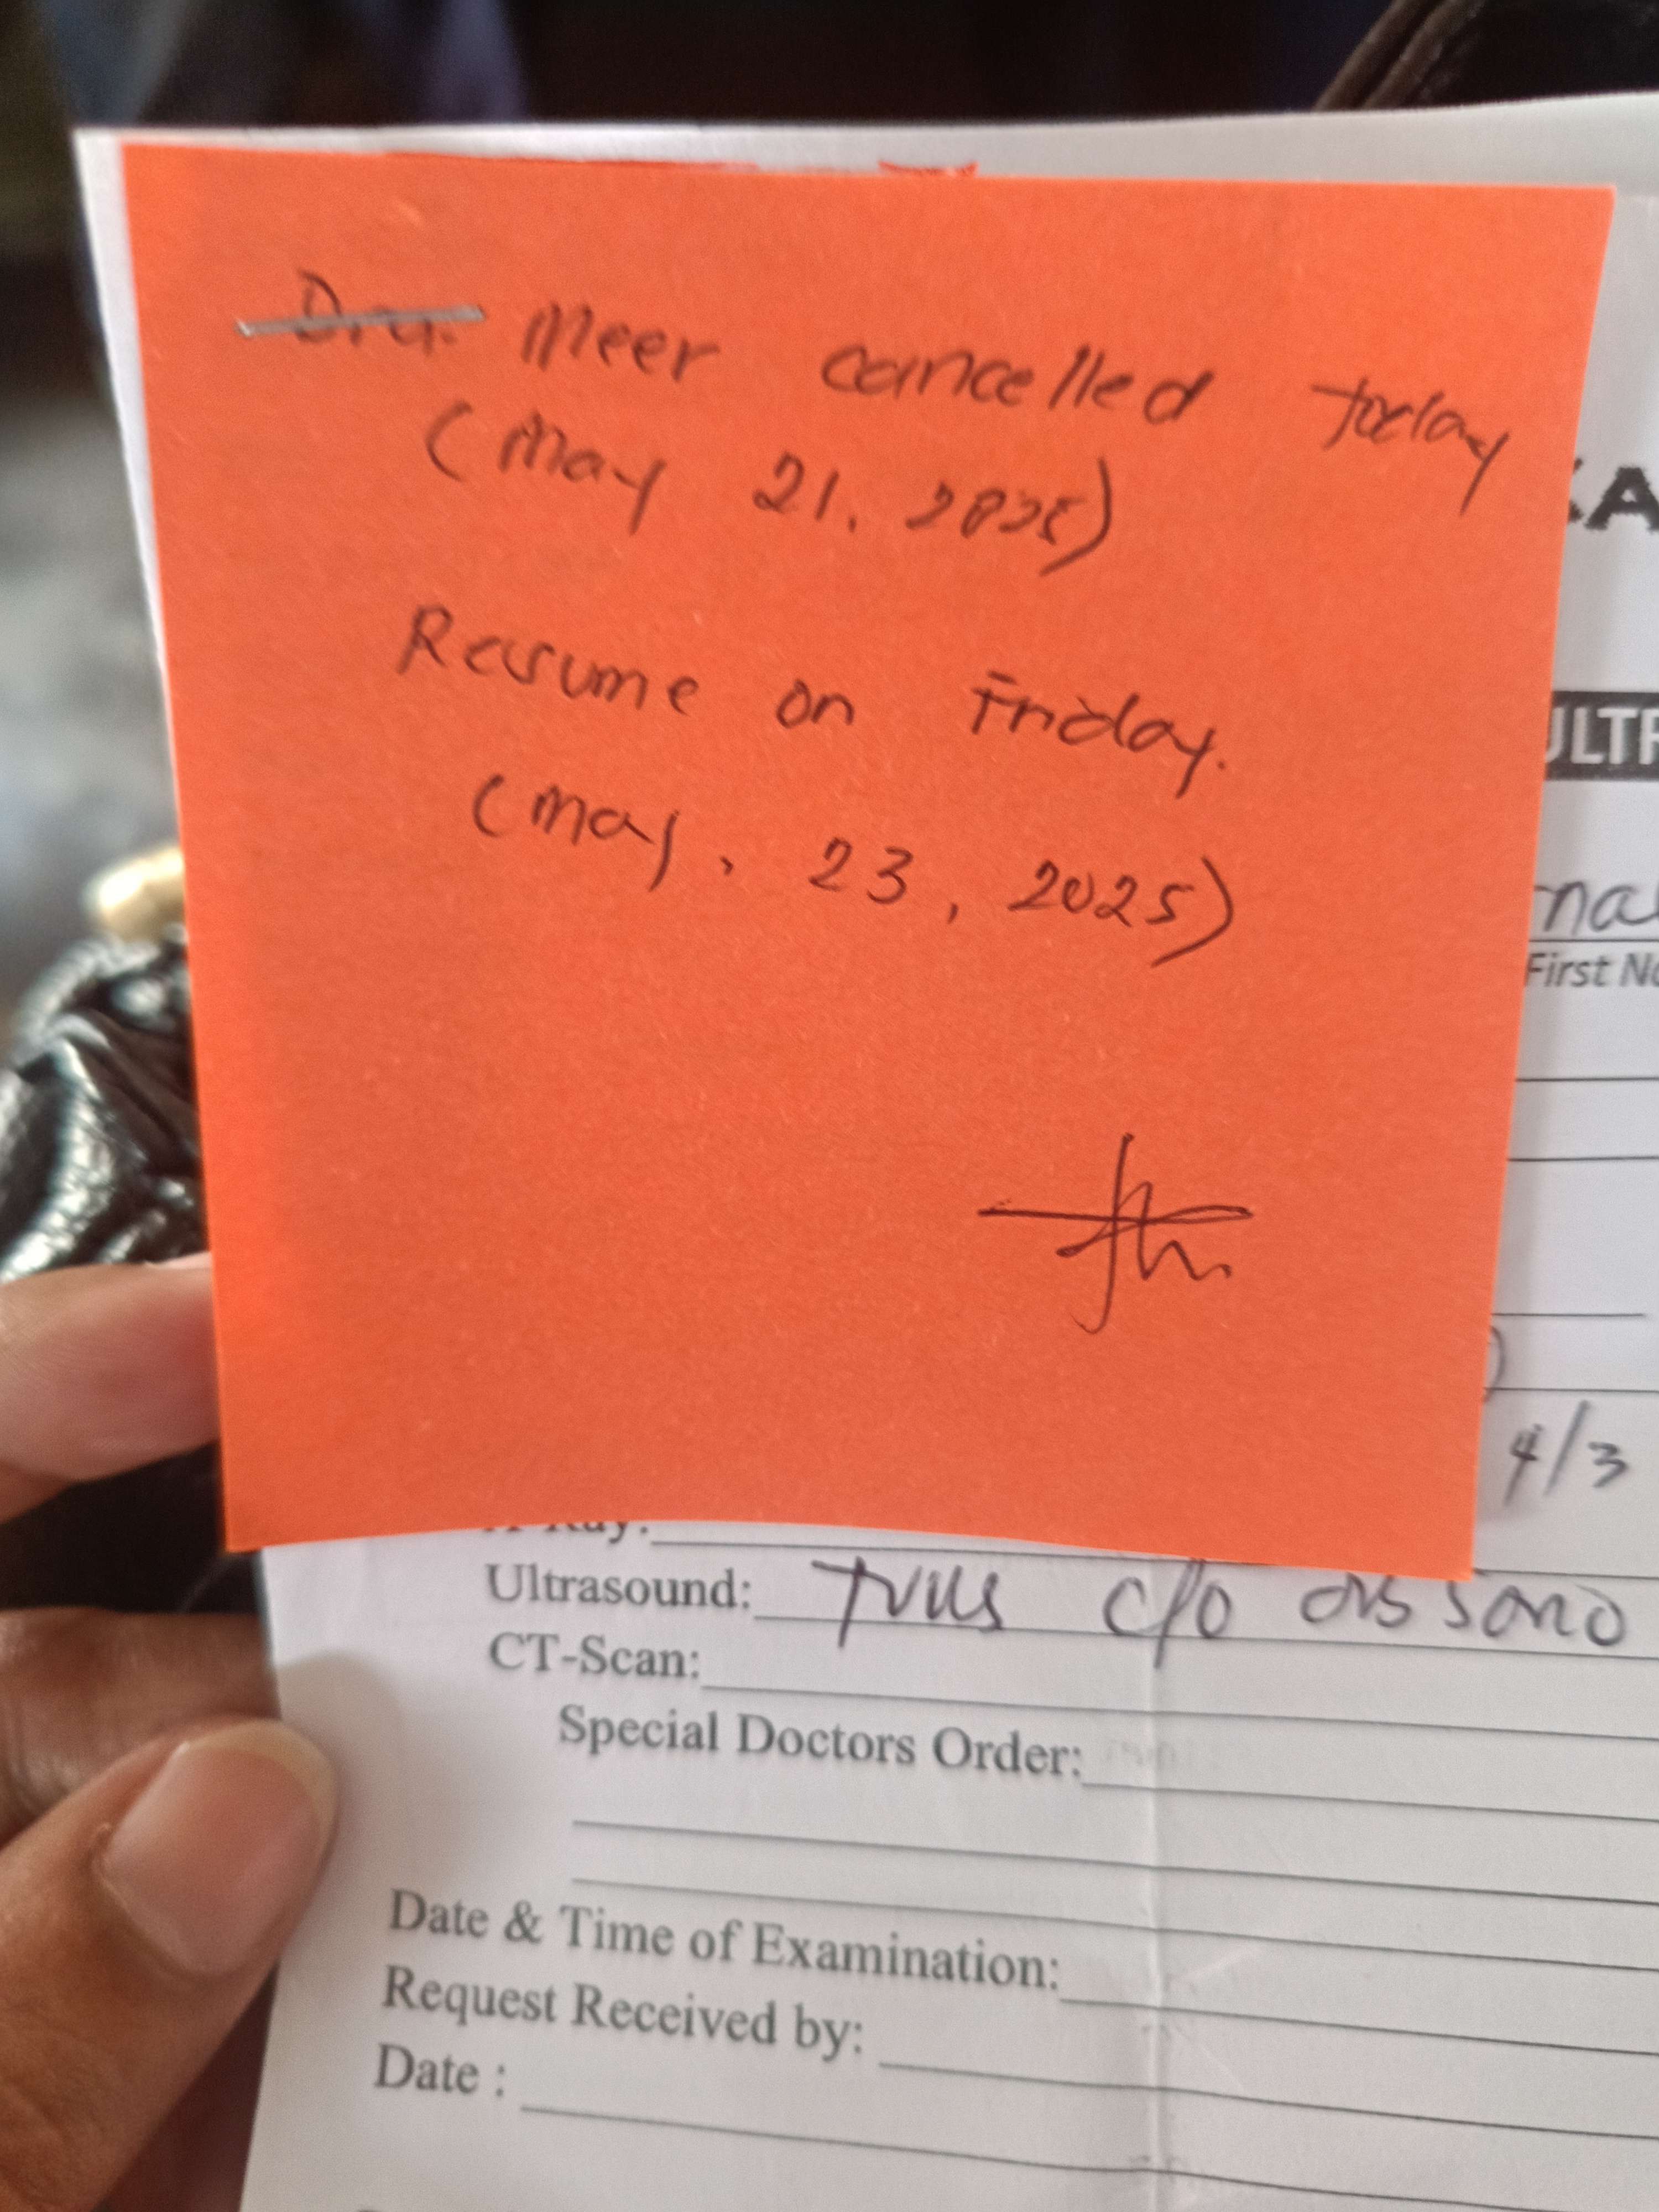 Dra. Meer cancelled today
(May 21, 2025)
Resume on Friday.
(May, 23, 2025)
ULTR
First Na
4/3
X-Ray:
Ultrasound: TVUS c/o OB SONO
CT-Scan:
Special Doctors Order:
Date & Time of Examination:
Request Received by:
Date :